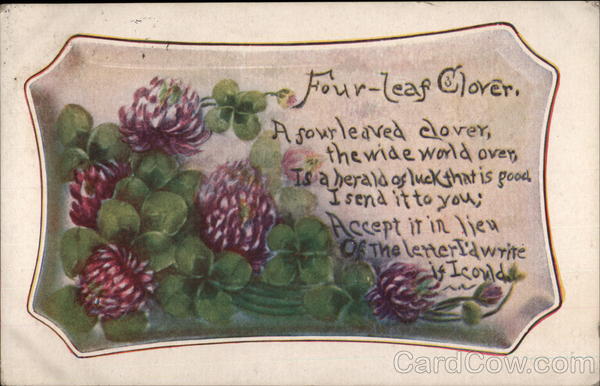 Four-Leaf Clover.
A four leaved clover,
the wide world over,
Is a herald of luck that is good
I send it to you;
Accept it in lieu
Of the letter I'd write
if I could.
CardCow.com